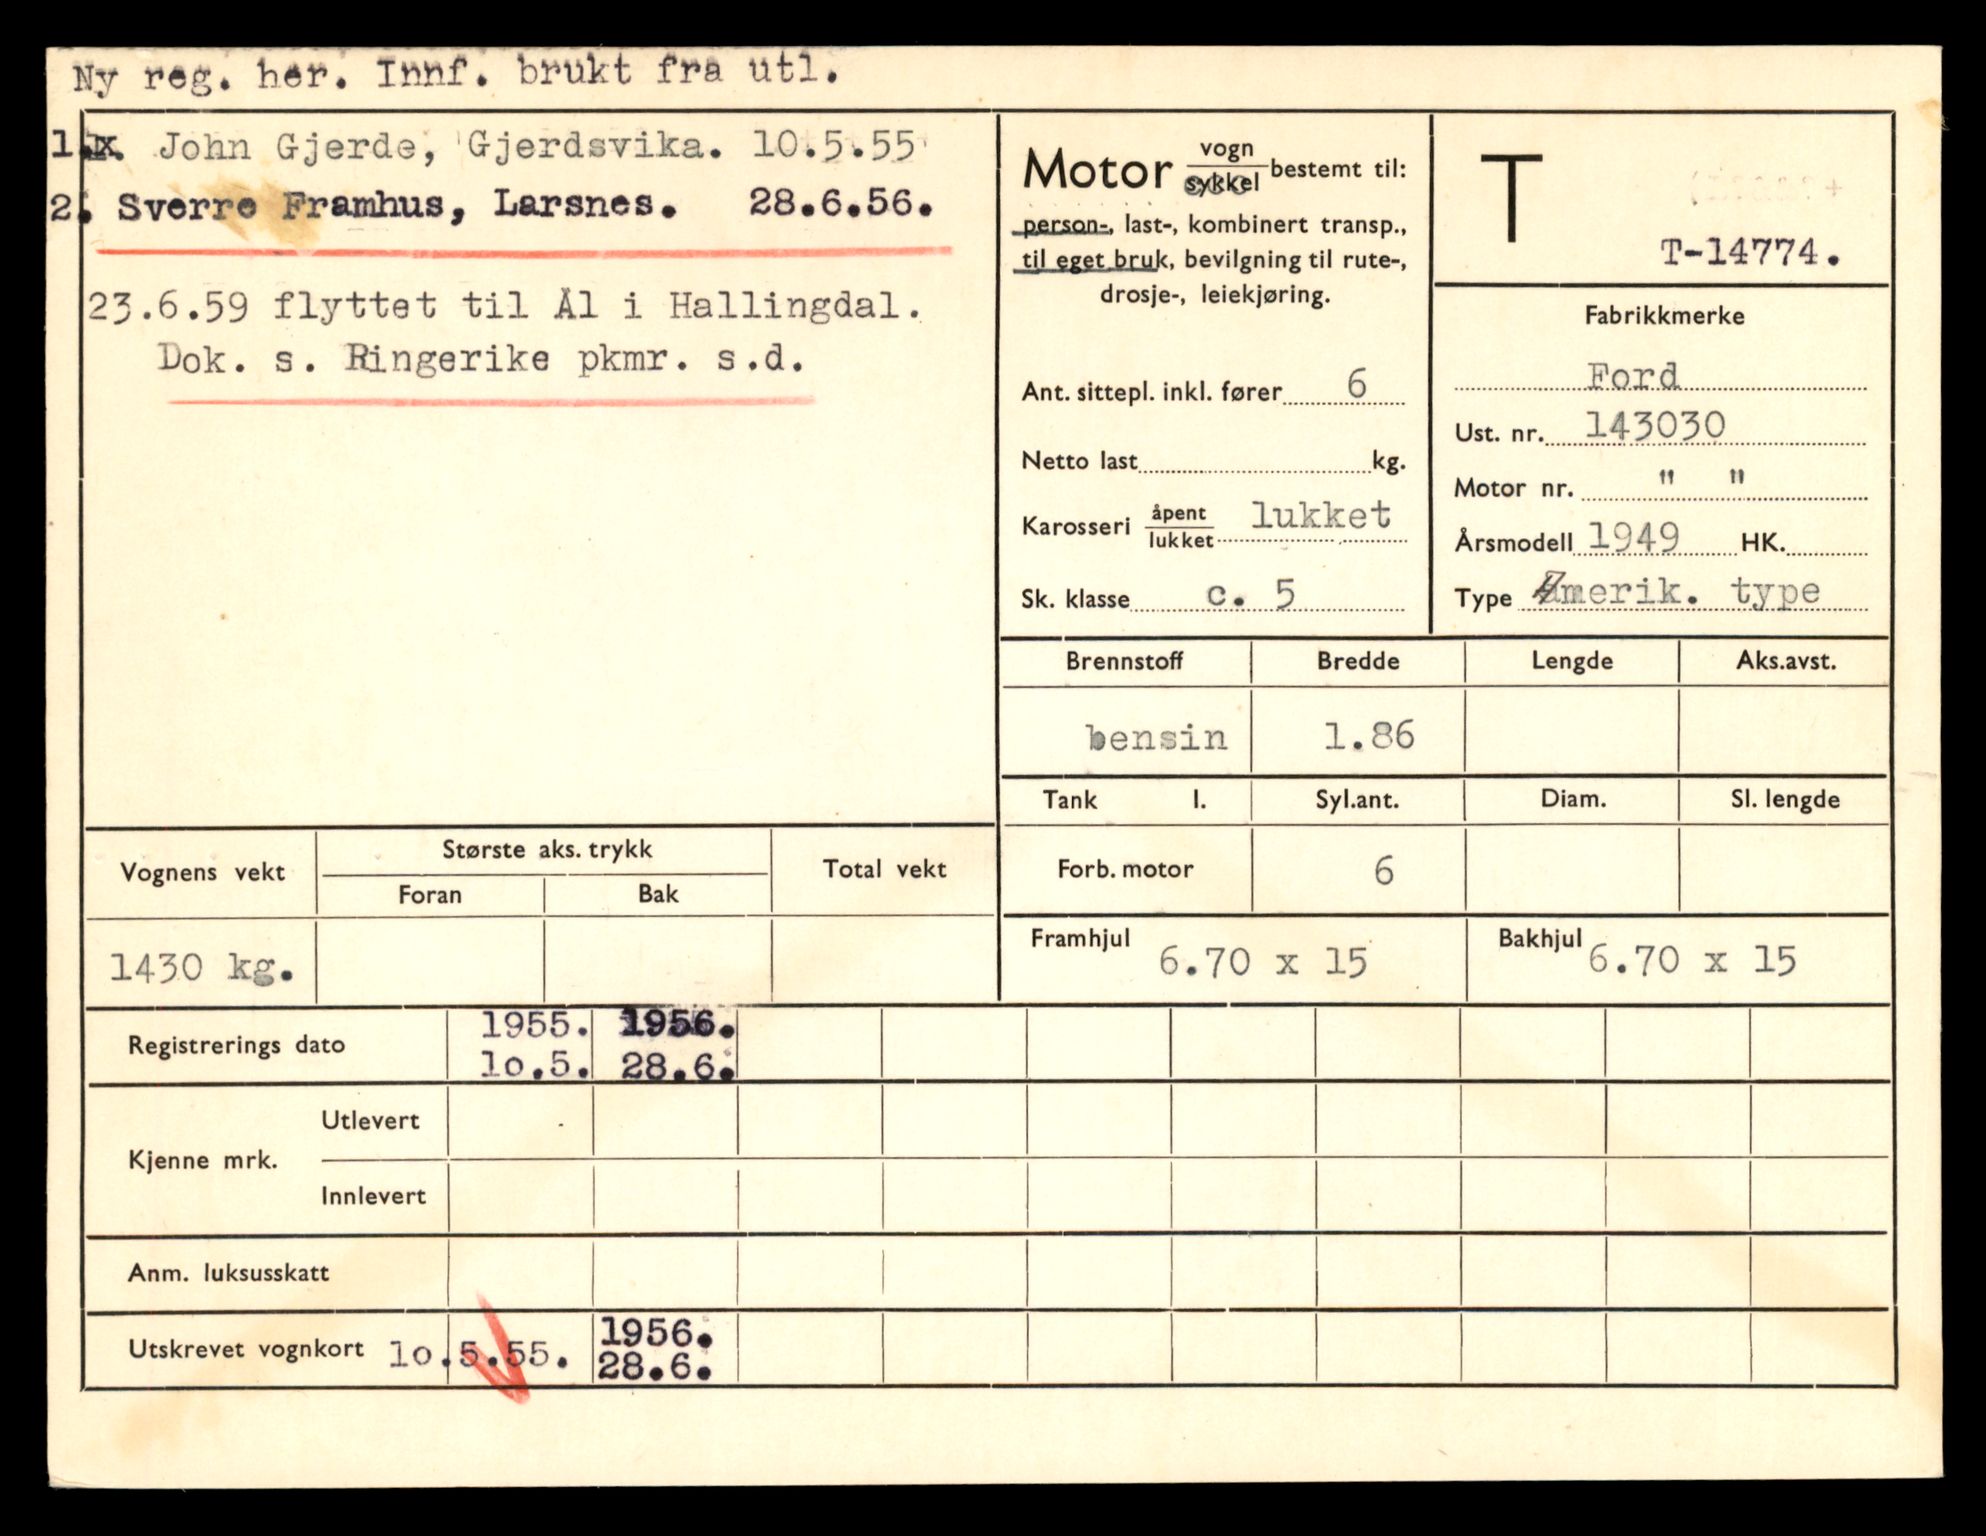 Ny reg. her. Innf. brukt fra utl.
1. John Gjerde, Gjerdsvika. 10.5.55
2. Sverre Framhus, Larsnes. 28.6.56.
23.6.59 flyttet til Ål i Hallingdal.
Dok. s. Ringerike pkmr. s.d.
Motor vogn sykkel bestemt til:
person-, last-, kombinert transp.,
til eget bruk, bevilgning til rute-,
drosje-, leiekjøring.
Ant. sittepl. inkl. fører 6
Netto last kg.
Karosseri åpent lukket lukket
Sk. klasse c. 5
T
T-14774.
Fabrikkmerke
Ford
Ust. nr. 143030
Motor nr. " "
Årsmodell 1949 HK.
Type Amerik. type
Brennstoff Bredde Lengde Aks.avst.
bensin 1.86
Tank l. Syl.ant. Diam. Sl. lengde
Forb. motor 6
Framhjul 6.70 x 15 Bakhjul 6.70 x 15
Vognens vekt Største aks. trykk Total vekt
Foran Bak
1430 kg.
Registrerings dato 1955. 1956.
1o.5. 28.6.
Kjenne mrk. Utlevert
Innlevert
Anm. luksusskatt
Utskrevet vognkort 1o.5.55. 1956.
28.6.